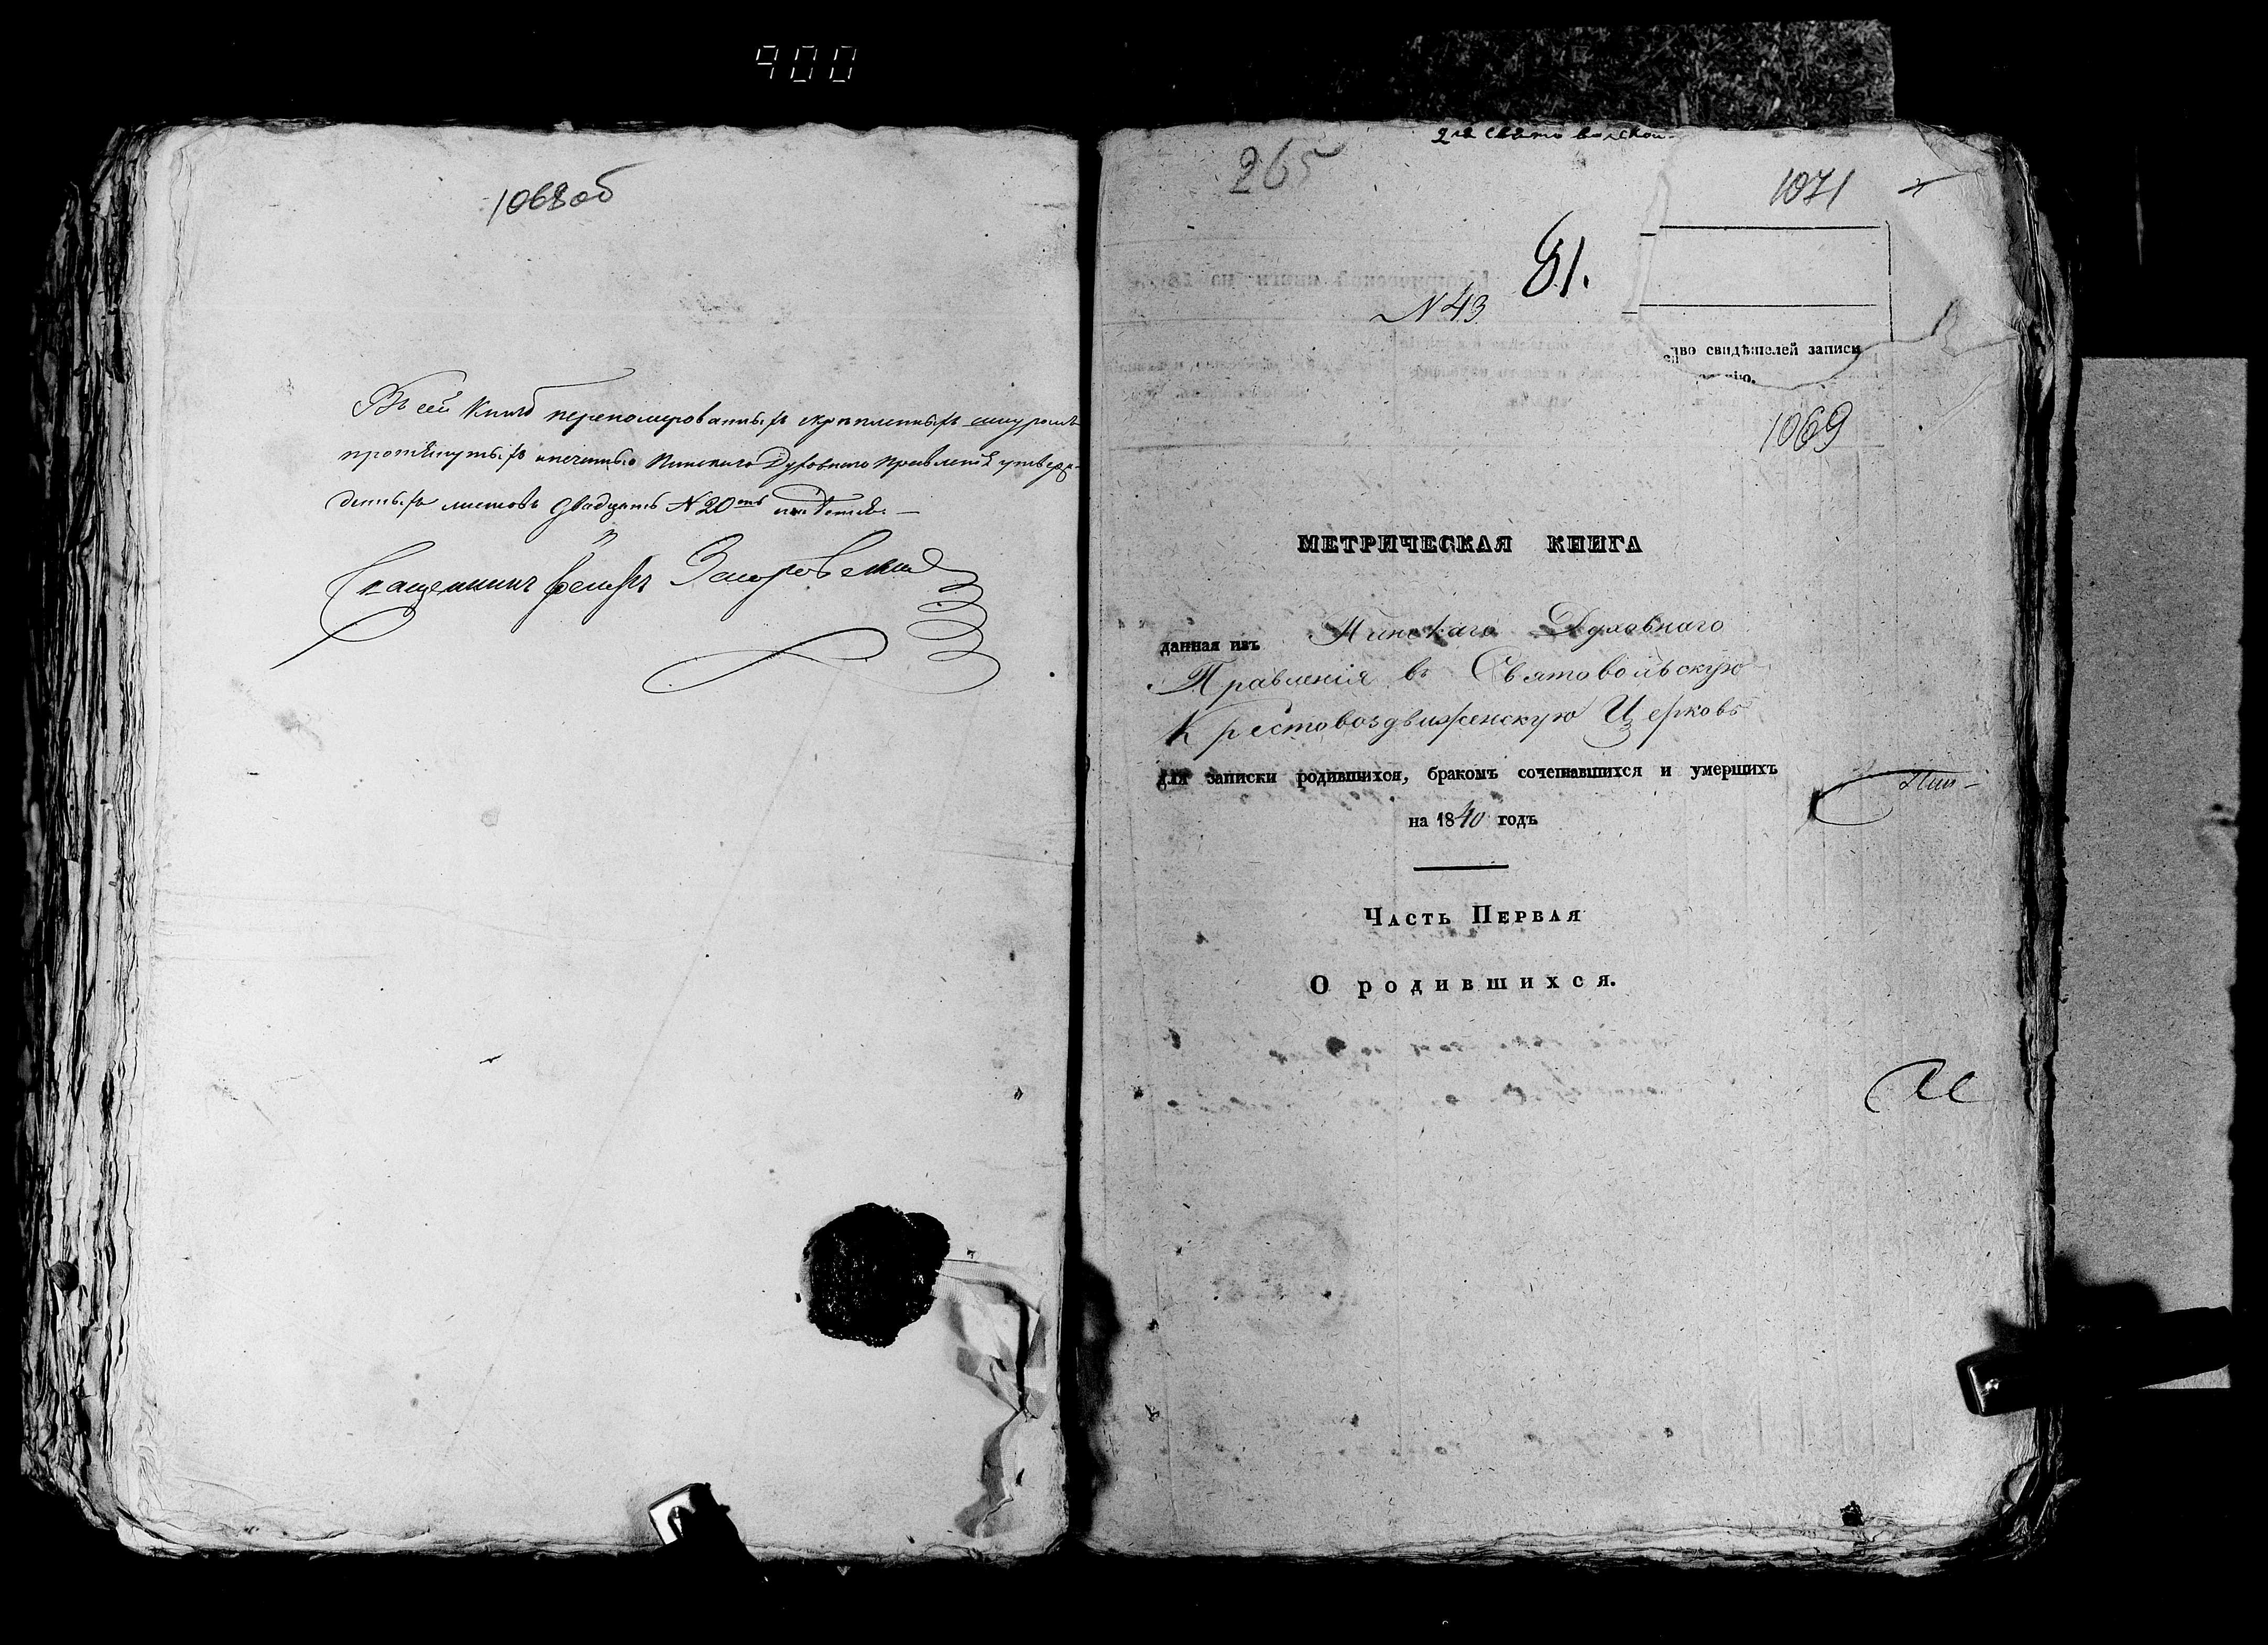 900
1068об
Въ сей Книгѣ переномерованныхъ скрѣпленныхъ шнуромъ
протянутыхъ и печатью Пинскаго Духовнаго Правленія утверж-
денныхъ листовъ двадцать N 20
Священникъ
для Свято вольской
265
1071
81.
N 43
свидѣтелей записи
1069
МЕТРИЧЕСКАЯ КНИГА
данная изъ Пинскаго Духовнаго
Правленія въ Святовольскую
Крестовоздвиженскую Церковь
для записки родившихся, бракомъ сочетавшихся и умершихъ
на 1840 годъ
Часть Первая
О родившихся.